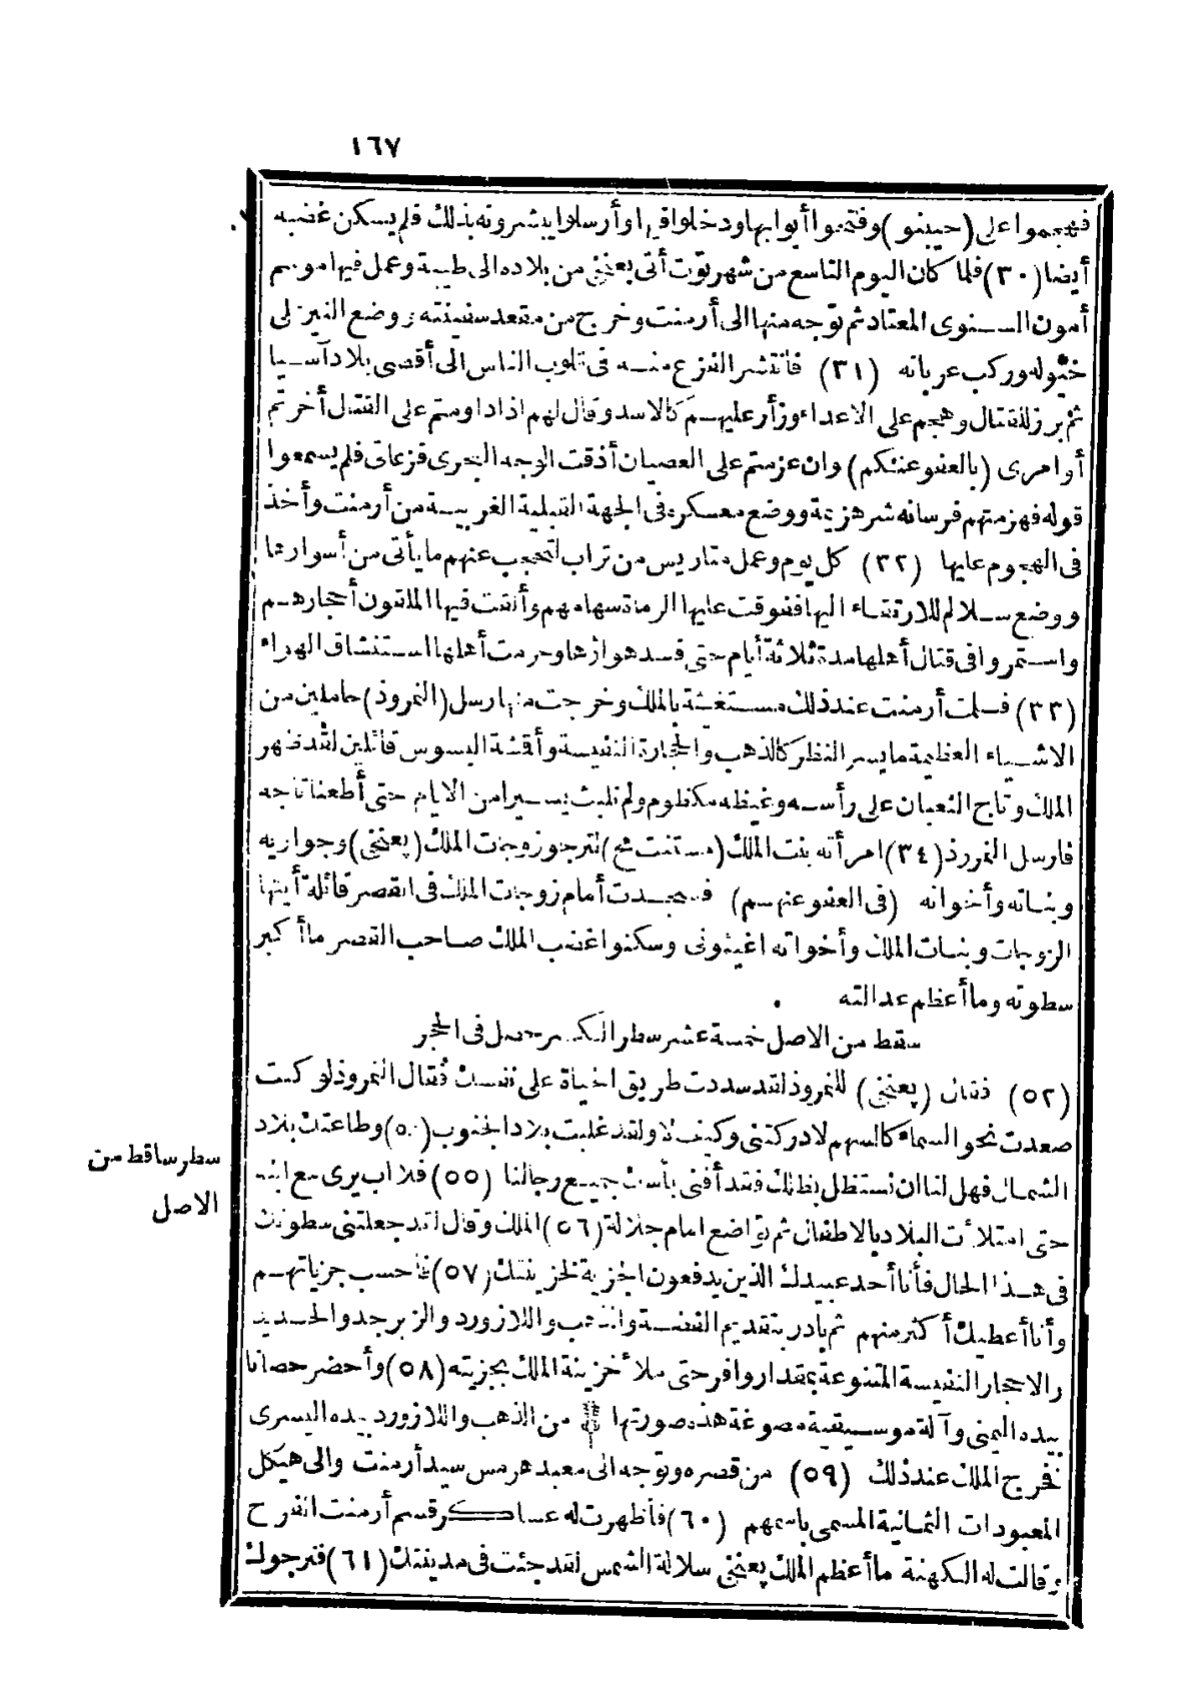 ١٦٧
فهجموا على (حيبنو) وفتحوا أبوابها ودخلوا فيها وأرسلوا يبشرونه بذلك فلم يسكن غضبه
أيضا (٣٠) فلما كان اليوم التاسع من شهر توت أتى يعنخي من بلاده الى طيبة وعمل فيها موسم
أمون السنوى المعتاد ثم توجه منها الى أرمنت وخرج من مقعد سفينته ووضع النير على
خيوله وركب عرباته (٣١) فانتشر الفزع منه فى قلوب الناس الى أقصى بلاد آسيا
ثم برز للقتال وهجم على الاعداء وزأر عليهم كالاسد وقال لهم اذا داومتم على القتال أخرتم
أوامرى (بالعفو عنكم) وان عزمتم على العصيان أذقت الوجه البحرى فزعاتى فلم يسمعوا
قوله فهزمتهم فرسانه شر هزيمة ووضع معسكره فى الجهة القبلية الغربية من أرمنت وأخذ
فى الهجوم عليها (٣٢) كل يوم وعمل متاريس من تراب لتحجب عنهم ما يأتى من أسوارها
ووضع سلالم للارتقاء اليها ففوقت عليها الرماة سهامهم وألقت فيها الملاقون أحجارهم
واستمروا فى قتال أهلها مدة ثلاثة أيام حتى فسد هواؤها وحرمت أهلها استنشاق الهواء
(٣٣) فسلمت أرمنت عند ذلك مستغيثة بالملك وخرجت منها رسل (النمروذ) حاملين من
الاشياء العظيمة ما يسر النظر كالذهب والحجارة النفيسة وأقشة البسوس قائلين لقد ظهر
الملك وتاج الثعبان على رأسه وغيظه مكظوم ولم نلبث يسيرا من الايام حتى أطعنا تاجه
فارسل النمروذ (٣٤) امرأته بنت الملك (مستنت مح) لترجو زوجات الملك (يعنخي) وجواريه
وبناته وأخواته (فى العفو عنهم) فسجدت أمام زوجات الملك فى القصر قائلة أيتها
الزوجات وبنات الملك وأخواته اغيثونى وسكنوا غضب الملك صاحب القصر ما أكبر
سطوته وما أعظم عدالته
سقط من الاصل خمسة عشر سطرا لكسر حصل فى الحجر
(٥٢) فقال (يعنخي) للنمروذ لقد سددت طريق الحياة على نفسك فقال النمروذ لو كنت
صعدت نحو السماء كالسهم لادركتنى وكيف لا ولقد غلبت بلاد الجنوب (٥٠) وطاعتك بلاد
سطر ساقط من
الاصل
الشمال فهل لنا ان نستظل بظلك فقد أفنى بأسك جميع رجالنا (٥٥) فلا اب يرى مع ابنه
حتى امتلأت البلاد بالاطفال ثم تواضع امام جلالة (٥٦) الملك وقال لقد جعلتنى سطوتك
فى هذا الحال فأنا أحد عبيدك الذين يدفعون الجزية لخزينتك (٥٧) فاحسب جزياتهم
وأنا أعطيك أكثر منهم ثم بادر بتقديم الفضة والذهب واللازورد والزبرجد والحديد
والاحجار النفيسة المتنوعة بمقدار وافر حتى ملأ خزينة الملك بجزيته (٥٨) وأحضر حصانا
بيده اليمنى وآلة موسيقية مصوغة هذه صورتها من الذهب واللازورد بيده اليسرى
نخرج الملك عند ذلك (٥٩) من قصره وتوجه الى معبد هرمس سيد أرمنت والى هيكل
المعبودات الثمانية المسمى باسمهم (٦٠) فأظهرت له عساكر قسم أرمنت الفرح
وقالت له الكهنة ما أعظم الملك يعنخي سلالة الشمس لقد جئت فى مدينتك (٦١) فنرجوك